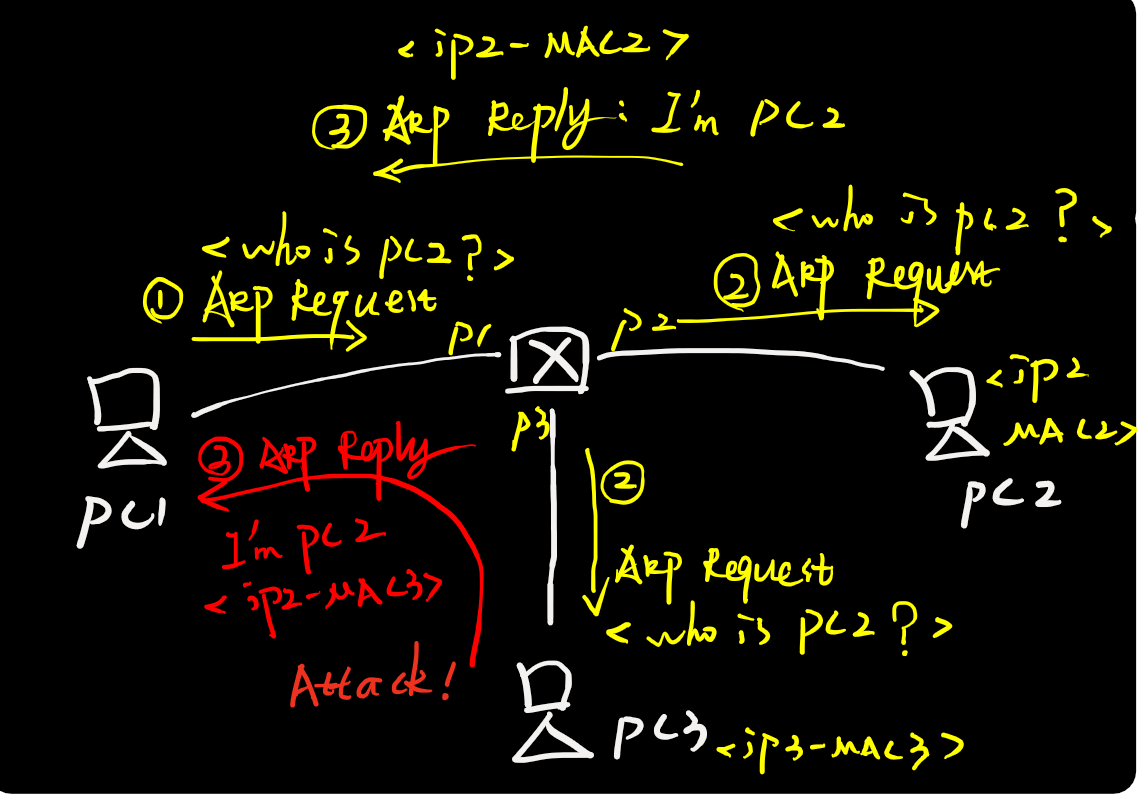 <ip2-MAC2>
③ ARP Reply: I'm PC2
<who is pc2?>
① ARP Request
<who is pc2?>
② ARP Request
P1
P2
P3
<ip2
MAC2>
PC1
PC2
③ ARP Reply
I'm PC2
<ip2-MAC3>
Attack!
②
ARP Request
<who is PC2?>
PC3 <ip3-MAC3>